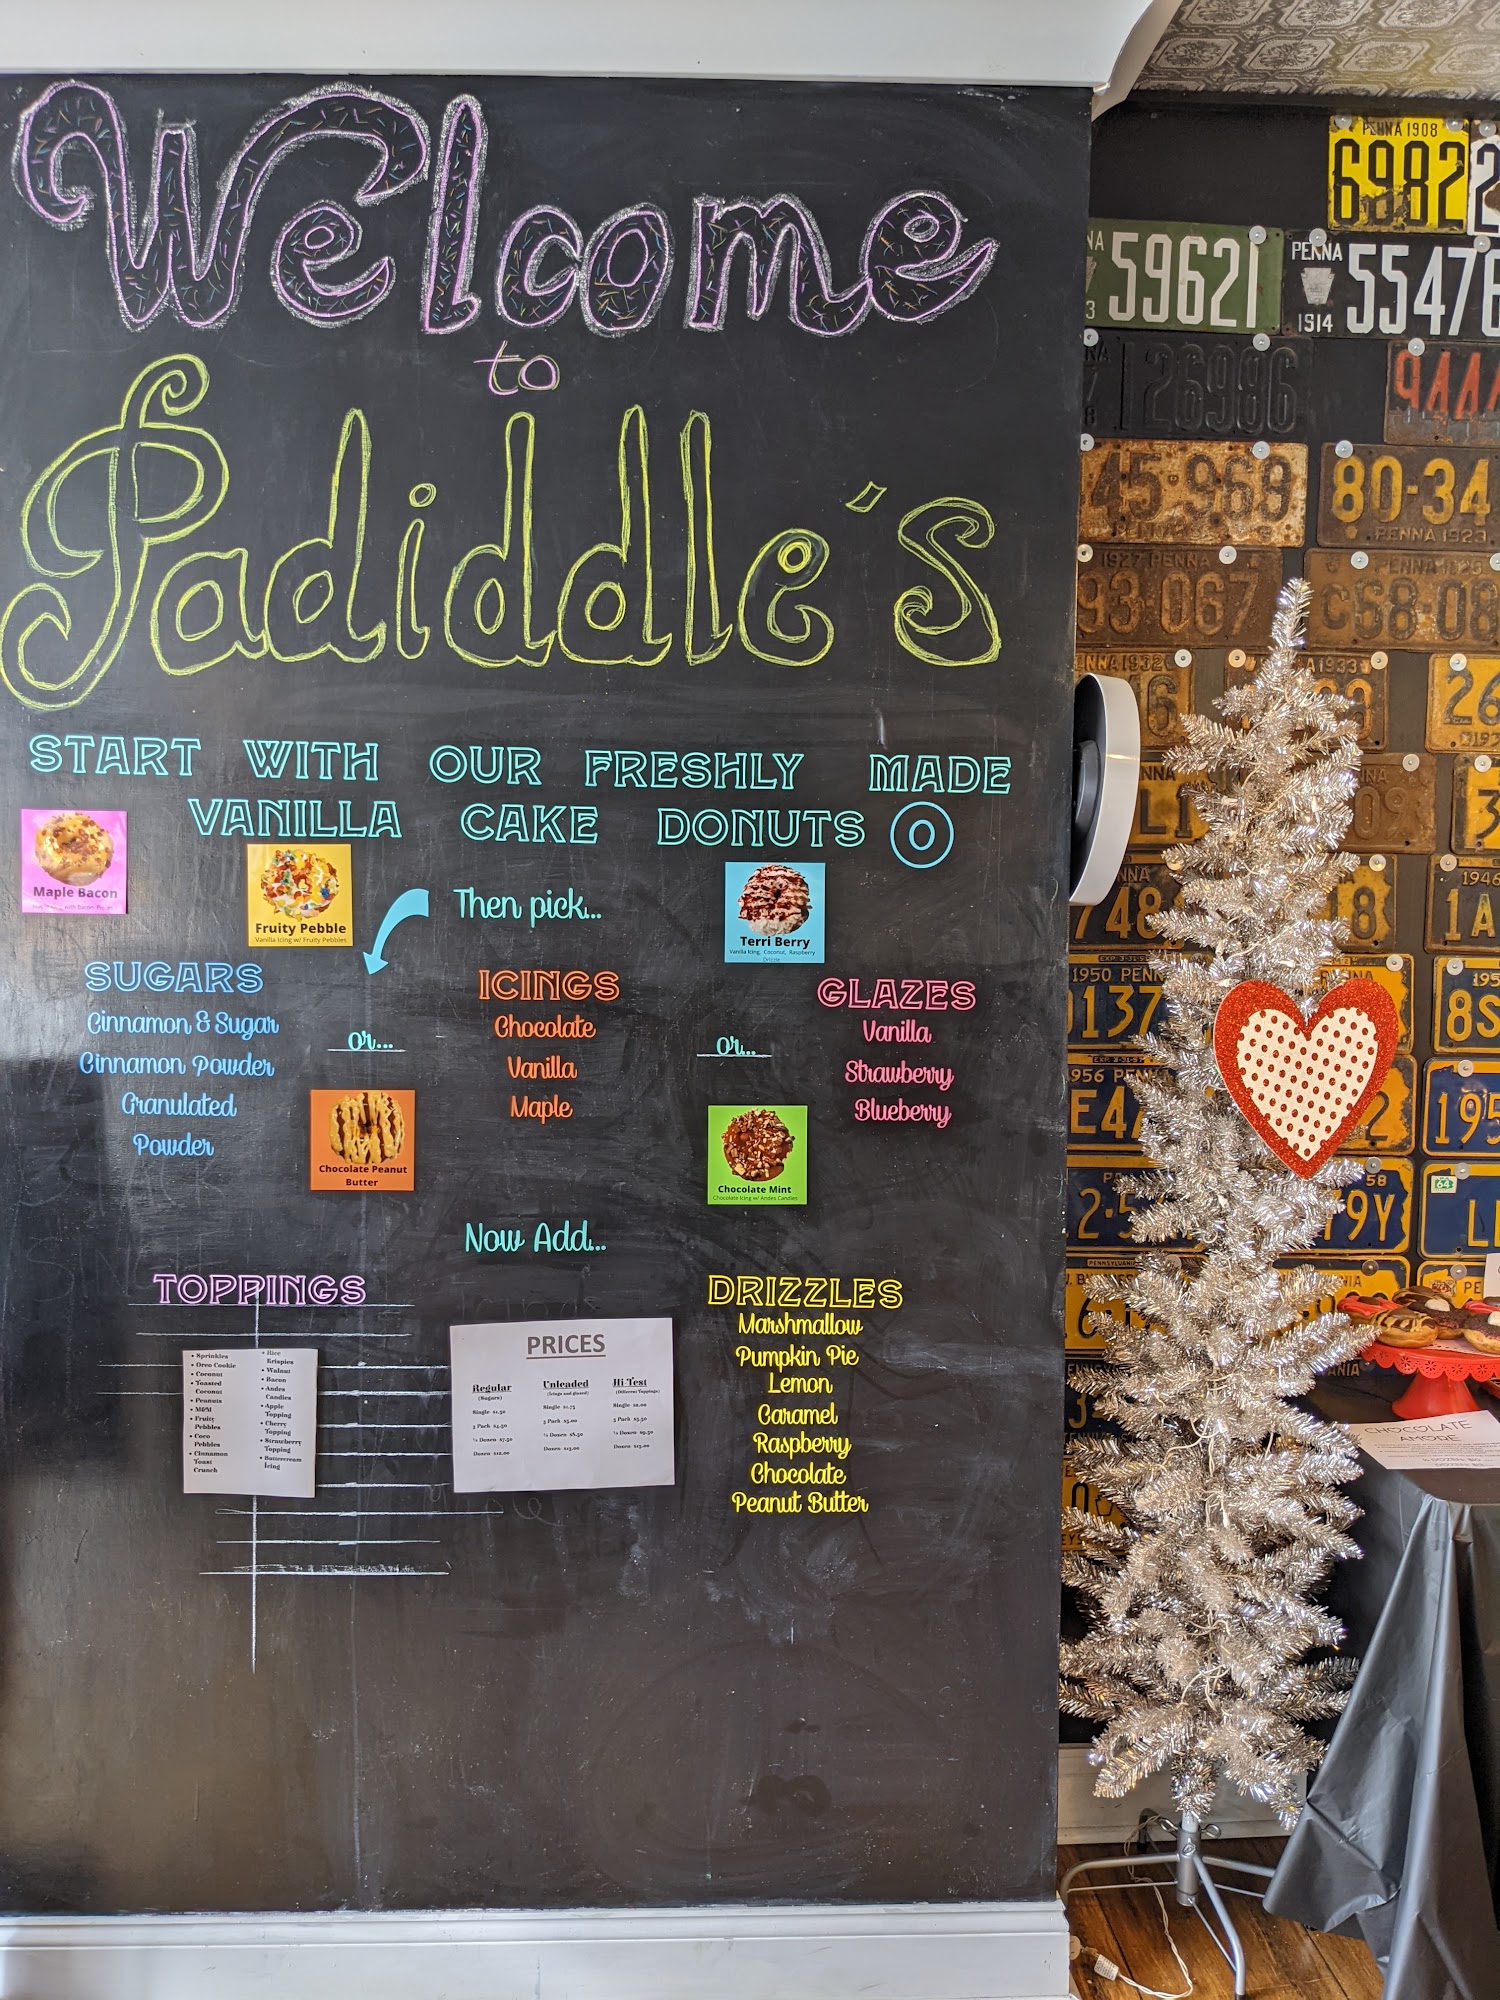 Welcome
to
Padiddle's
START WITH OUR FRESHLY MADE
VANILLA CAKE DONUTS
Maple Bacon
Fruity Pebble
Vanilla Icing w/ Fruity Pebbles
Then pick...
Terri Berry
Vanilla Icing, Coconut, Raspberry
Drizzle
SUGARS
Cinnamon & Sugar
Cinnamon Powder
Granulated
Powder
or...
ICINGS
Chocolate
Vanilla
Maple
or...
GLAZES
Vanilla
Strawberry
Blueberry
Chocolate Peanut
Butter
Chocolate Mint
Chocolate Icing w/ Andes Candies
Now Add...
TOPPINGS
• Sprinkles
• Oreo Cookie
• Coconut
• Toasted
Coconut
• Peanuts
• M&M
• Fruity
Pebbles
• Coco
Pebbles
• Cinnamon
Toast
Crunch
• Rice
Krispies
• Walnut
• Bacon
• Andes
Candies
• Apple
Topping
• Cherry
Topping
• Strawberry
Topping
• Buttercream
Icing
PRICES
Regular
(Sugars)
Single $1.50
3 Pack $4.50
½ Dozen $7.50
Dozen $12.00
Unleaded
(Icings and glazes)
Single $1.75
3 Pack $5.00
½ Dozen $8.50
Dozen $13.00
Hi-Test
(Different Toppings)
Single $2.00
3 Pack $5.50
½ Dozen $9.50
Dozen $15.00
DRIZZLES
Marshmallow
Pumpkin Pie
Lemon
Caramel
Raspberry
Chocolate
Peanut Butter
PENNA 1908
6982
59621
PENNA
1914
5547
26986
944
45·969
80-34
PENNA 1923
1927 PENNA
93·067
C68·08
PENNA 1932
1933
26
748
1946
1A
1950 PENN
137
8S
1956 PENN
E4
195
58
79Y
64
2·5
PENNSYLVANIA
CHOCOLATE